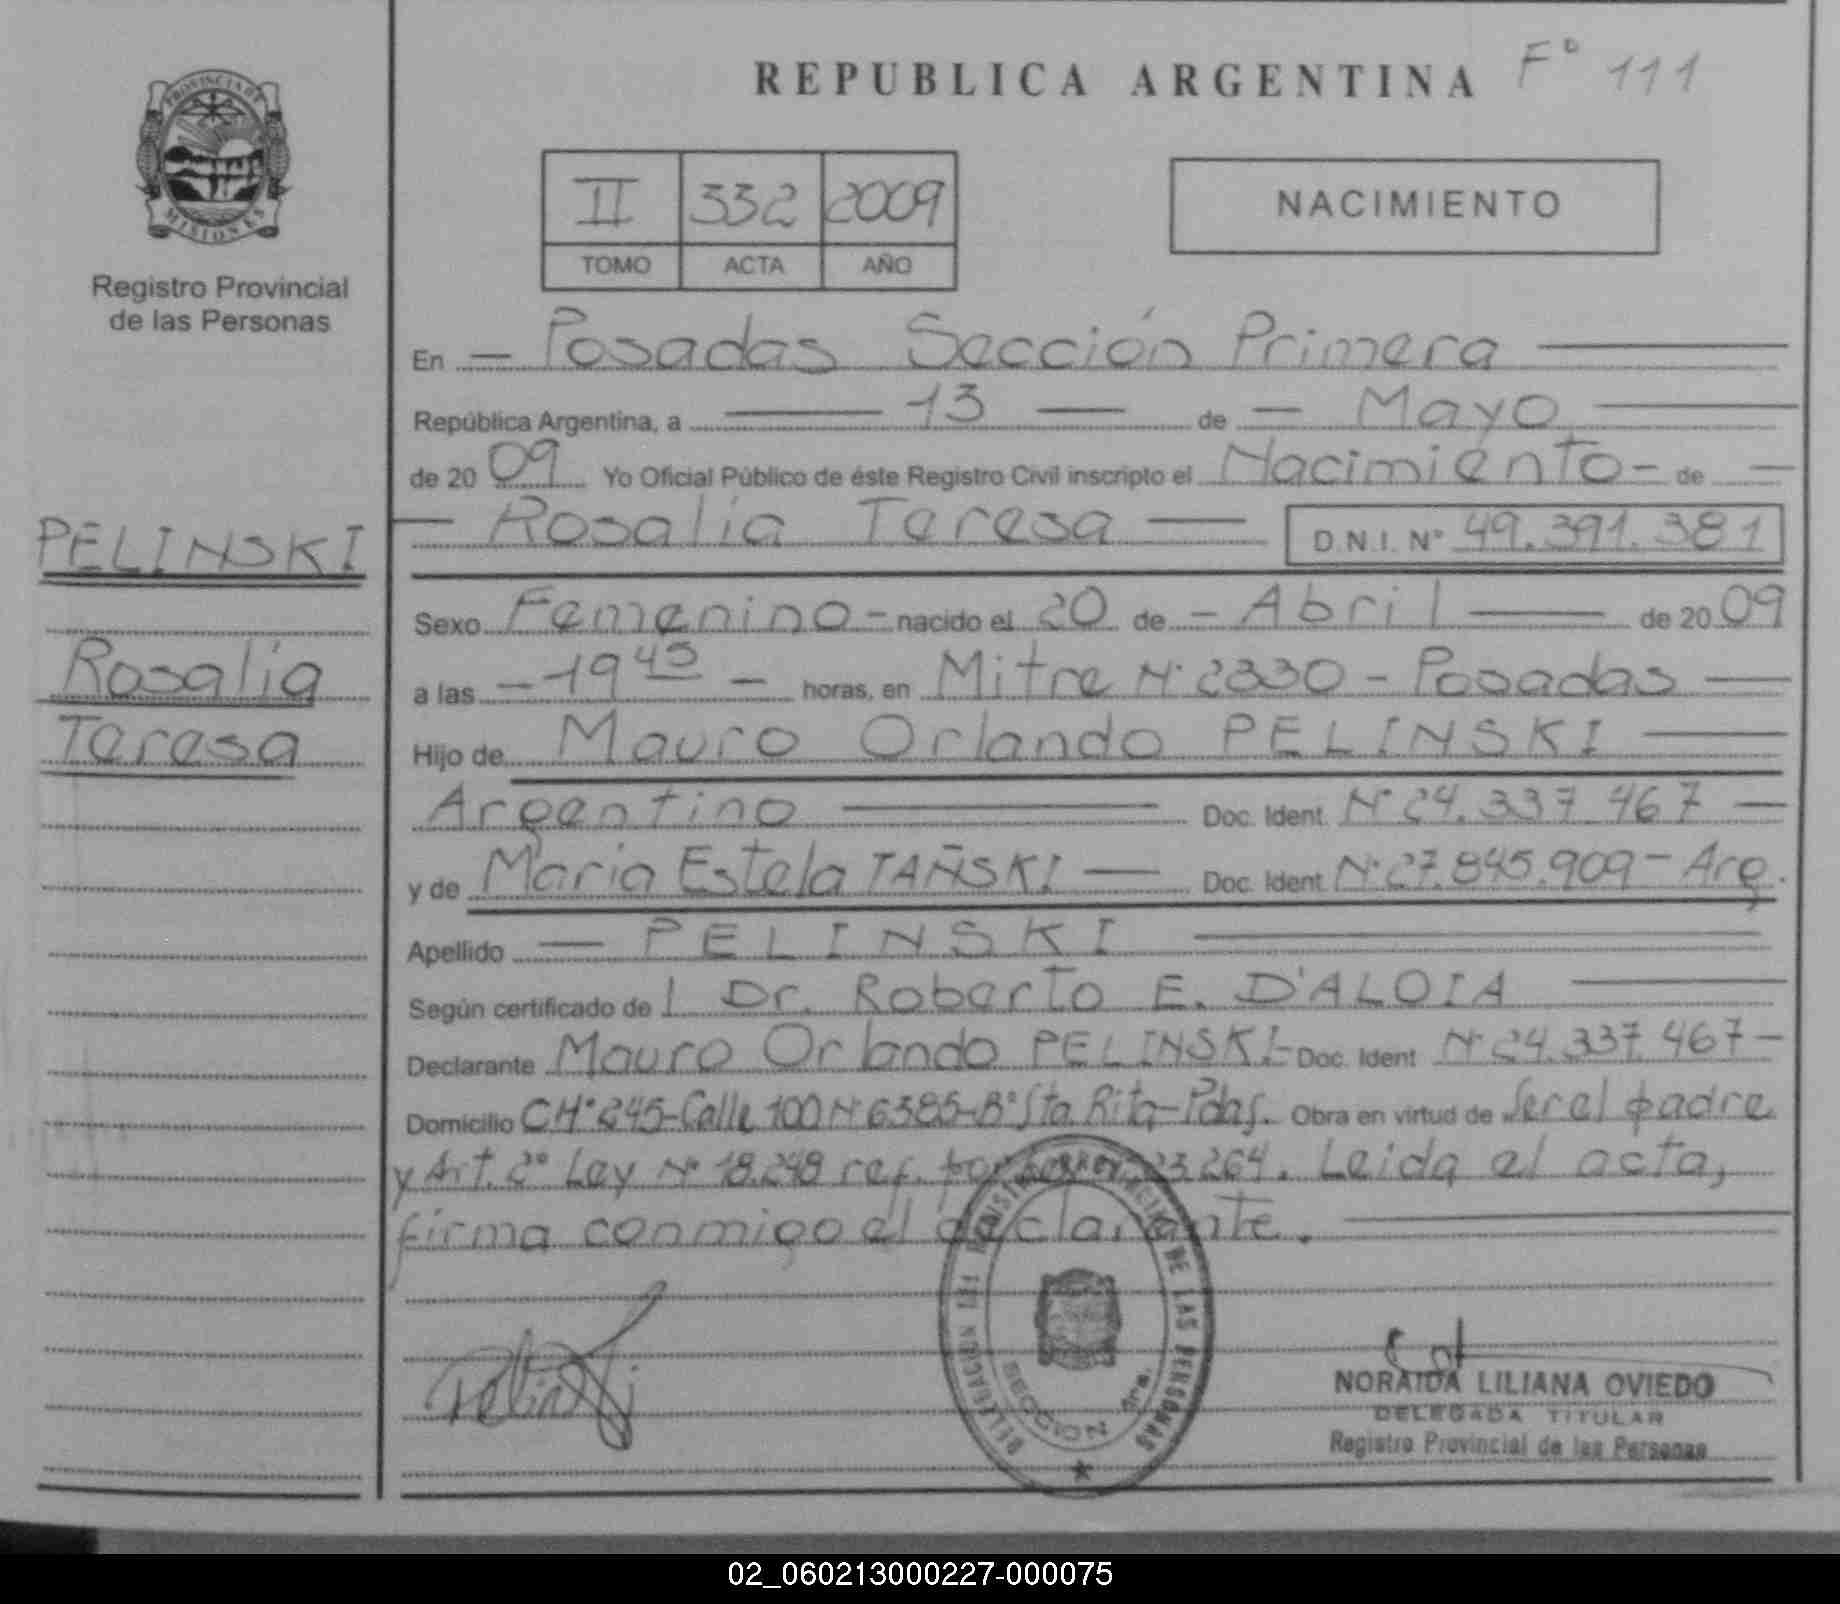 REPUBLICA ARGENTINA Fº 111
PROVINCIA DE
MISIONES
Registro Provincial
de las Personas
II 332 2009
TOMO ACTA AÑO
NACIMIENTO
En — Posadas Sección Primera —
República Argentina, a — 13 — de — Mayo —
de 2009 Yo Oficial Público de éste Registro Civil inscripto el Nacimiento - de —
— Rosalía Teresa — D.N.I. Nº 49.391.381
PELINSKI
Rosalía
Teresa
Sexo Femenino - nacido el 20 de - Abril — de 2009
a las — 19 45 — horas, en Mitre Nº 2330 - Posadas —
Hijo de Mauro Orlando PELINSKI —
Argentino — Doc. Ident. Nº 24.337.467 —
y de María Estela TAÑSKI — Doc. Ident. Nº 27.845.909 - Arg.
Apellido — PELINSKI —
Según certificado de l Dr. Roberto E. D'ALOIA —
Declarante Mauro Orlando PELINSKI - Doc. Ident. Nº 24.337.467 -
Domicilio CHº 245-Calle 100 Nº 6385-Bº Sta. Rita-Pdas. Obra en virtud de Ser el padre
y Art. 2º Ley Nº 18.248 ref. por Ley Nº 23.264. Leída el acta,
firma conmigo el declarante. —
Pelinski
DELEGACION 1ra REGISTRO PROVINCIAL DE LAS PERSONAS
SECCION 1ra.
NORAIDA LILIANA OVIEDO
DELEGADA TITULAR
Registro Provincial de las Personas
02_060213000227-000075